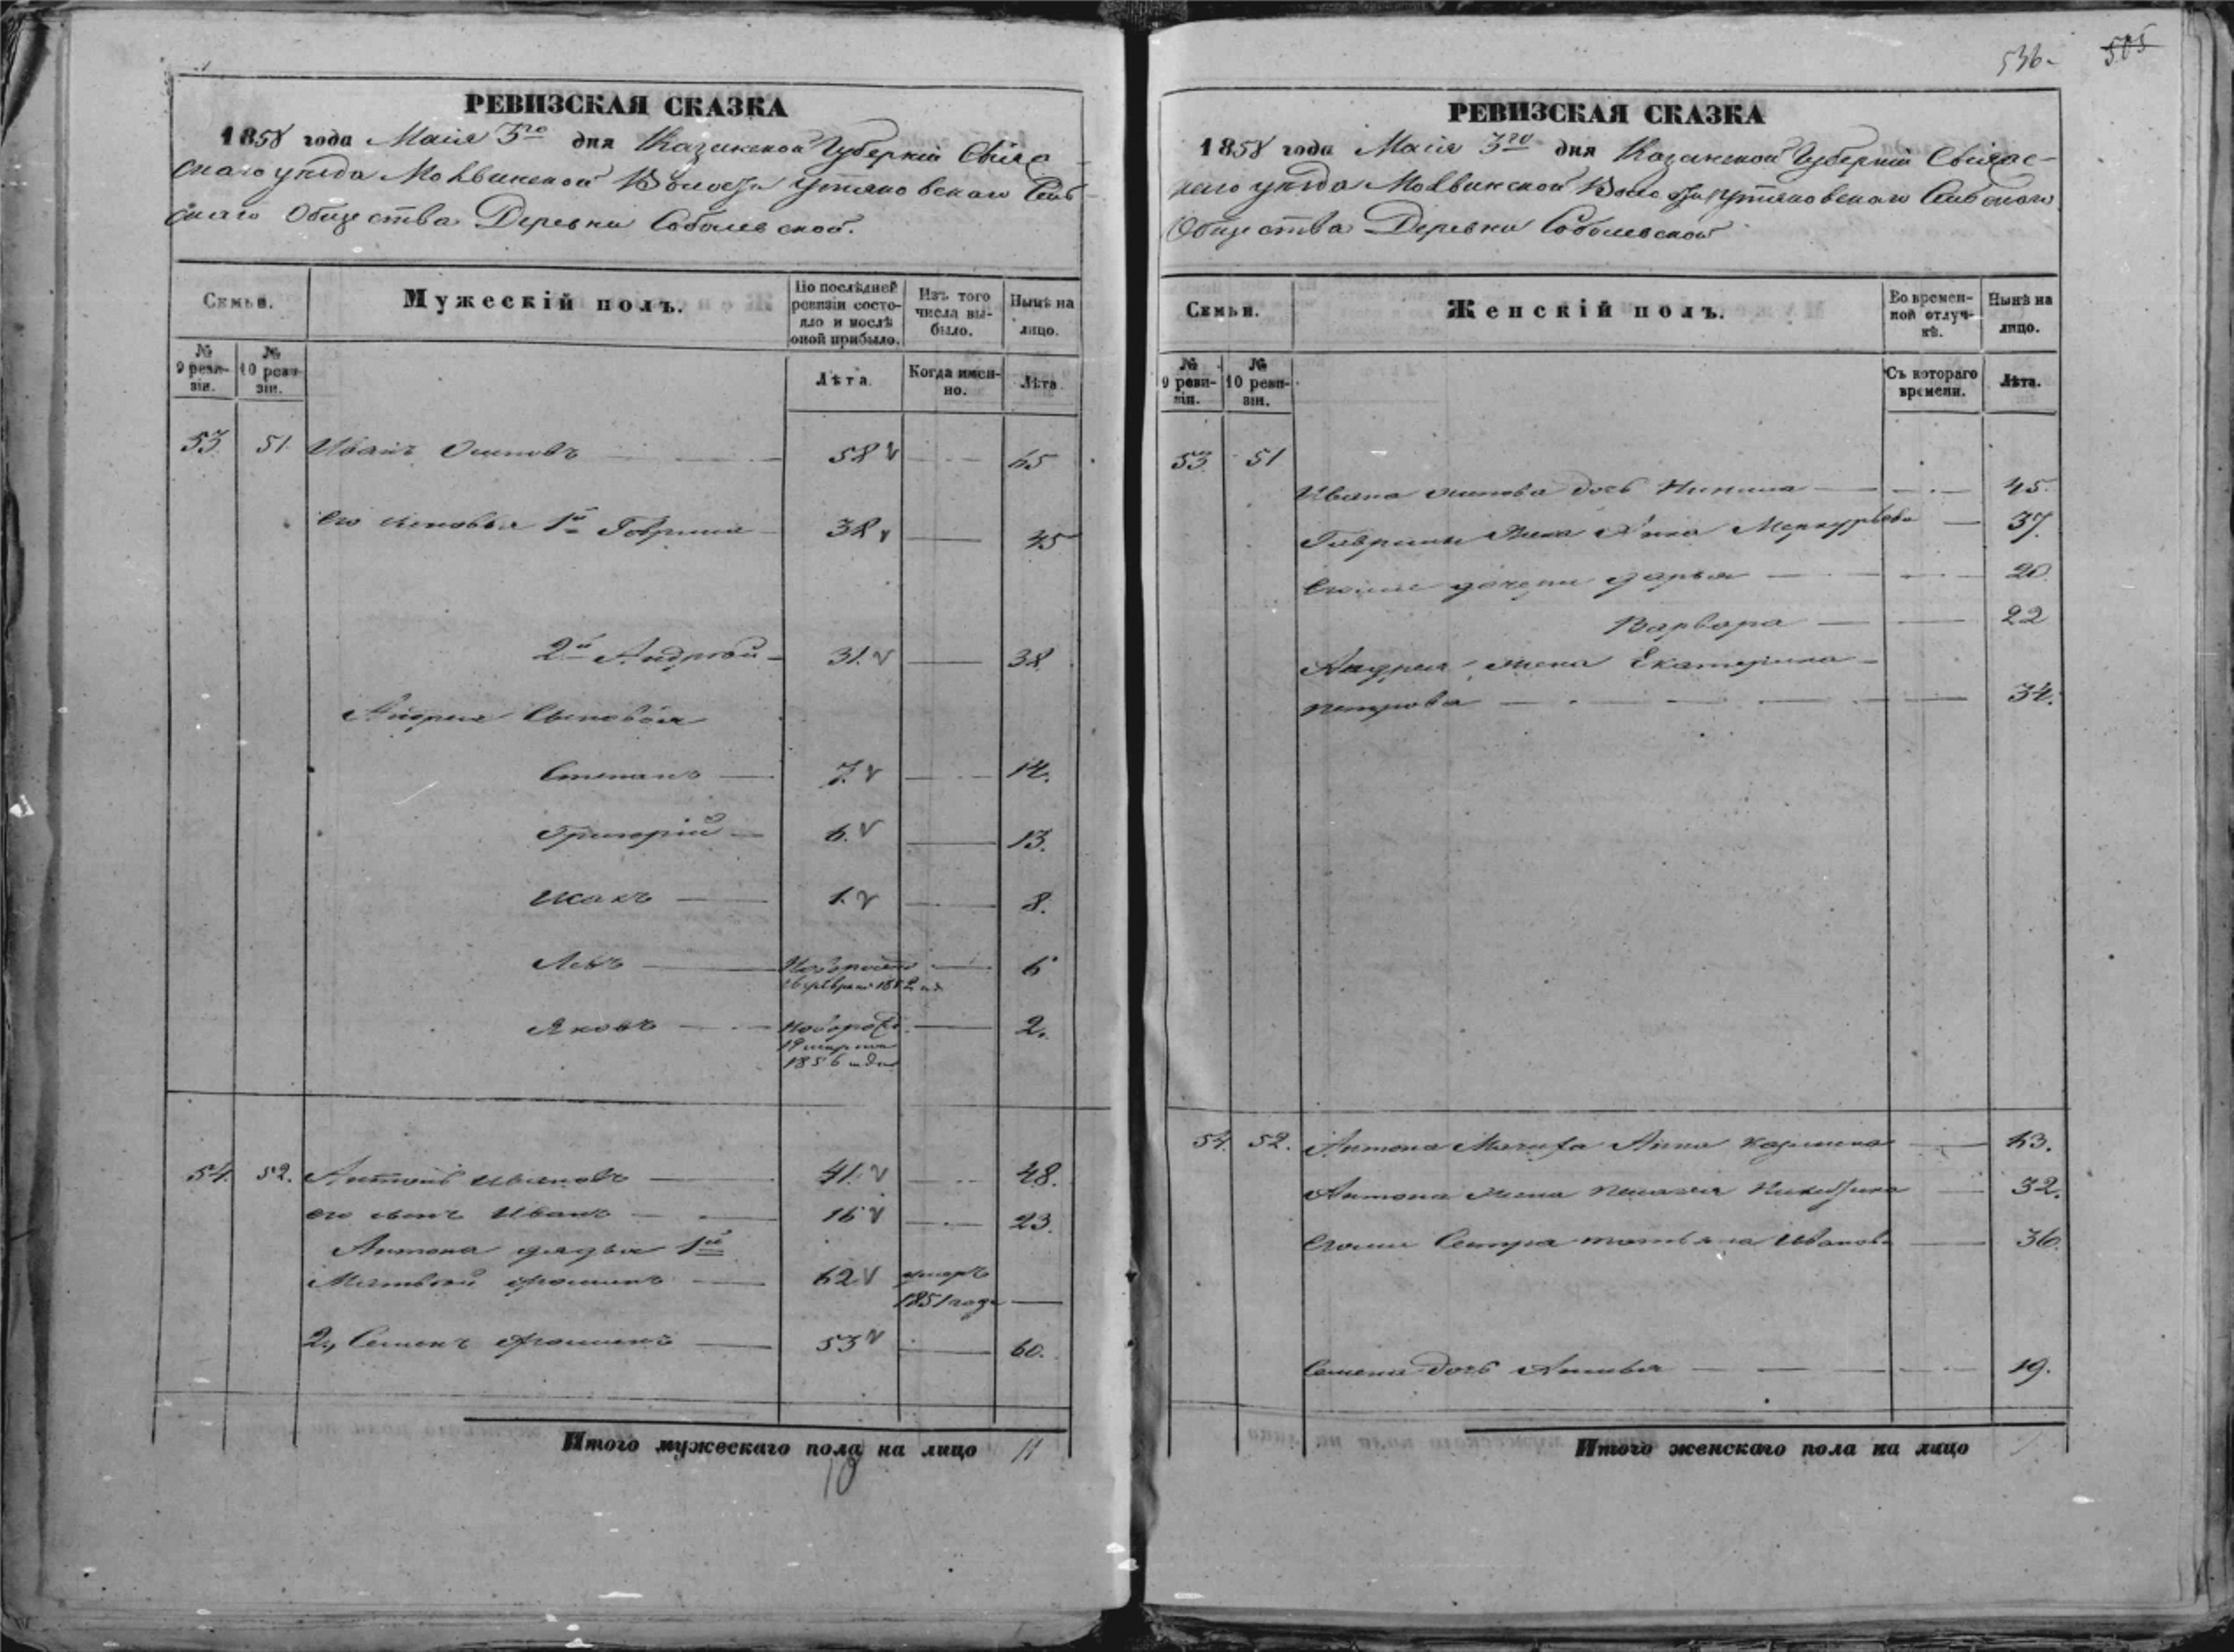 РЕВИЗСКАЯ СКАЗКА
1858 года Маія 3го дня Казанской Губерніи Свіяж-
скаго уѣзда Молвинской Волости Утяковскаго Сель-
скаго Общества Деревни Соболевской.
Семьи.
Мужескій полъ.
По послѣдней
ревизіи состо-
яло и послѣ
оной прибыло.
Изъ того
числа вы-
было.
Нынѣ на
лицо.
№
9 реви-
зіи.
№
10 реви-
зіи.
Лѣта.
Когда имен-
но.
Лѣта.
53. 51. Иванъ Осиповъ 58 65
Его сыновья 1й Гаврила 38 45
2й Андрей 31. 38.
Андрея Сыновья
Степанъ 7. 14.
Григорій 6. 13.
Исакъ 1. 8.
Левъ Новорожд. 6
февраля 1852
Яковъ Новорожд. 2.
19 марта
1856 года
54. 52. Антонъ Ивановъ 41. 48.
его сынъ Иванъ 16 23.
Антона дядья 1й
Матвей 62 умеръ
1851 года
2, Семенъ 53 60.
Итого мужескаго пола на лицо 11
10
536. 505
РЕВИЗСКАЯ СКАЗКА
1858 года Маія 3го дня Казанской Губерніи Свіяж-
скаго уѣзда Молвинской Волости Утяковскаго Сельскаго
Общества Деревни Соболевской
Семьи.
Женскій полъ.
Во времен-
ной отлуч-
кѣ.
Нынѣ на
лицо.
№
9 реви-
зіи.
№
10 реви-
зіи.
Съ котораго
времени.
Лѣта.
53. 51
Ивана Осипова дочь 45.
Гаврилы Жена Анна Меркурьева 37.
дочери Дарья 20.
Варвара 22
Андрея жена Екатерина
Петрова 34.
54. 52. Антона Мачиха Анна 63.
Антона жена Пелагея 32.
Сестра Татьяна Иванова 36.
Семена дочь 19.
Итого женскаго пола на лицо